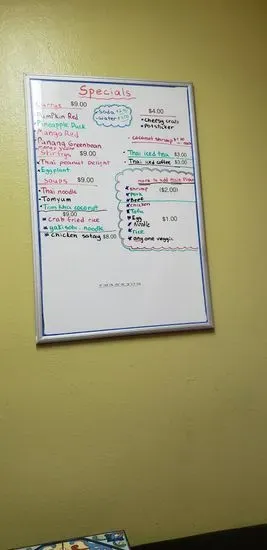 Specials
Currys $9.00
Pumpkin Red
Pineapple Duck
Mango Red
Panang Greenbean
Stirfrys $9.00
Thai peanut Delight
Eggplant
Soups $9.00
Thai noodle
Tomyum
Tom Kha coconut
$9.00
crab fried rice
yakisobi noodle
chicken satay $8.00
Soda
Water
$4.00
Cheesy crab
Potsticker
coconut shrimp
Thai iced tea $3.00
Thai iced coffee $3.00
shrimp ($2.00)
Pork
Beef
chicken
Tofu
Egg $1.00
Noodle
rice
anyone veggie